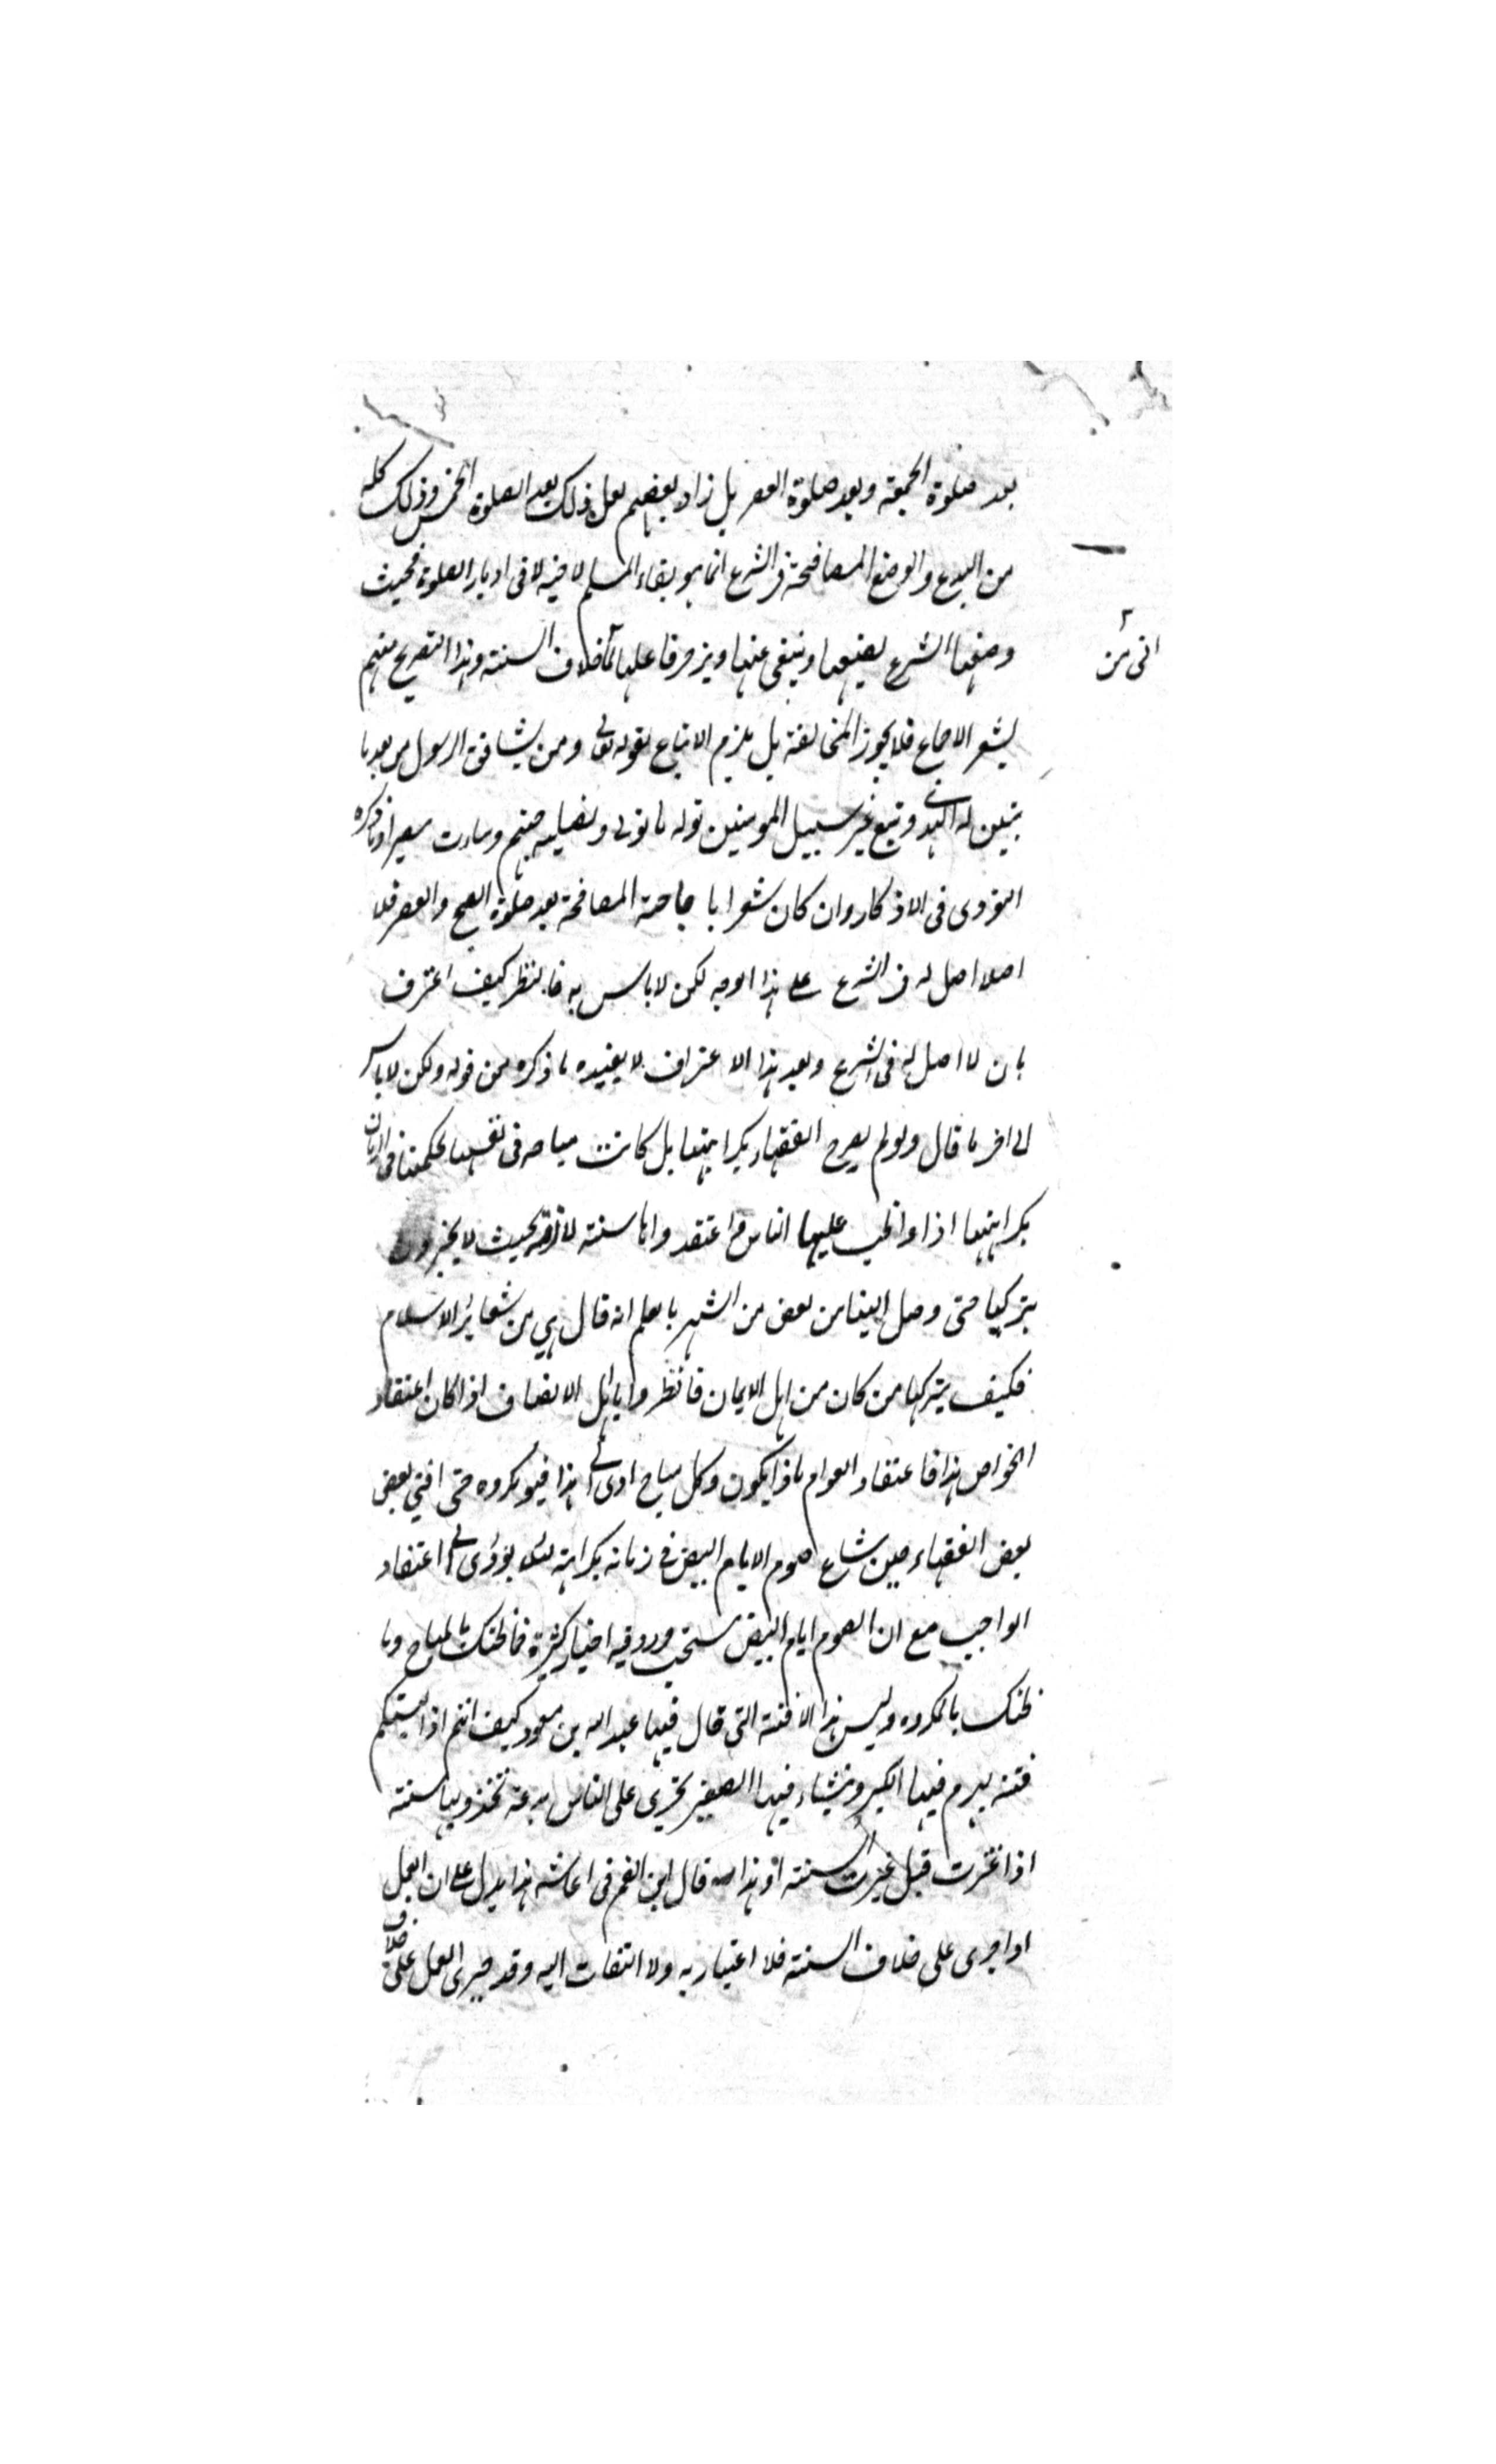 بعد صلوة الجمعة وبعد صلوة العصر بل زاد بعضهم بعد ذلك بعد الصلوة الخمس وذلك كله
من البدع والوضع المصافحة فى الشرع انما هو بقاء المسلم لاخيه لا فى ادبار الصلوة فحيث
وضعها الشرع يضعها وينهى عنها ويزجر فاعلها لما خلاف السنة وهذا التصريح منهم
يشعر الاجماع فلا يجوز المخالفة بل يلزم الاتباع لقوله تعالى ومن يشاقق الرسول من بعد ما
تبين له الهدى ويتبع غير سبيل المومنين نوله ما تولى ونصليه جهنم وساءت مصيرا وما ذكره
النووى فى الاذكار وان كان شعرا باباحة المصافحة بعد صلوة الصبح والعصر فلا
اصلا اصل له فى الشرع على هذا الوجه لكن لا باس به فانظر كيف اعترف
بان لا اصل له فى الشرع وبعد هذا الاعتراف لا يفيده ما ذكره من قوله ولكن لا باس
الى اخر ما قال ولو لم يصرح الفقهاء بكراهتها بل كانت مباحه فى نفسها لحكمنا فى
بكراهتها اذا واظب عليها الناس واعتقدوا انها سنة لازمة بحيث لا يجوزون
بتركها حتى وصل الينا من بعض من اشتهر بالعلم انه قال هي من شعائر الاسلام
فكيف يتركها من كان من اهل الايمان فانظروا يا اهل الانصاف اذا كان اعتقاد
الخواص هذا فاعتقاد العوام ماذا يكون وكل مباح ادى الى هذا فهو مكروه حتى افتى بعض
بعض الفقهاء حين شاع صوم الايام البيض فى زمانه بكراهته لئلا يؤدى الى اعتقاد
الواجب مع ان الصوم ايام البيض مستحب ورد فيه اخبار كثيرة فما ظنك بالمباح وما
ظنك بالمكروه وليس هذا الا فتنة التى قال فيها عبد الله بن مسعود كيف انتم اذا لبستكم
فتنه يهرم فيها الكبير وينشاء فيها الصغير تجرى على الناس بدعة تتخذونها سنة
اذا غيرت قيل غيرت السنة او هذا قال ابن القيم فى اغاثه هذا يدل على ان العمل
اذا جرى على خلاف السنة فلا اعتبار به ولا التفات اليه وقد جرى العمل على خلاف